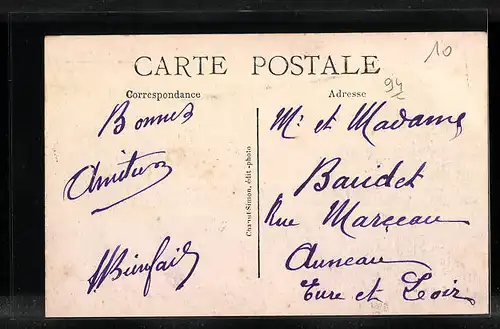 10
CARTE POSTALE
94
Correspondance
Adresse
Bonnes
Amitiés
Bienfait
Mr et Madame
Baudet
Rue Marceau
Auneau
Eure et Loir
édit.-photo